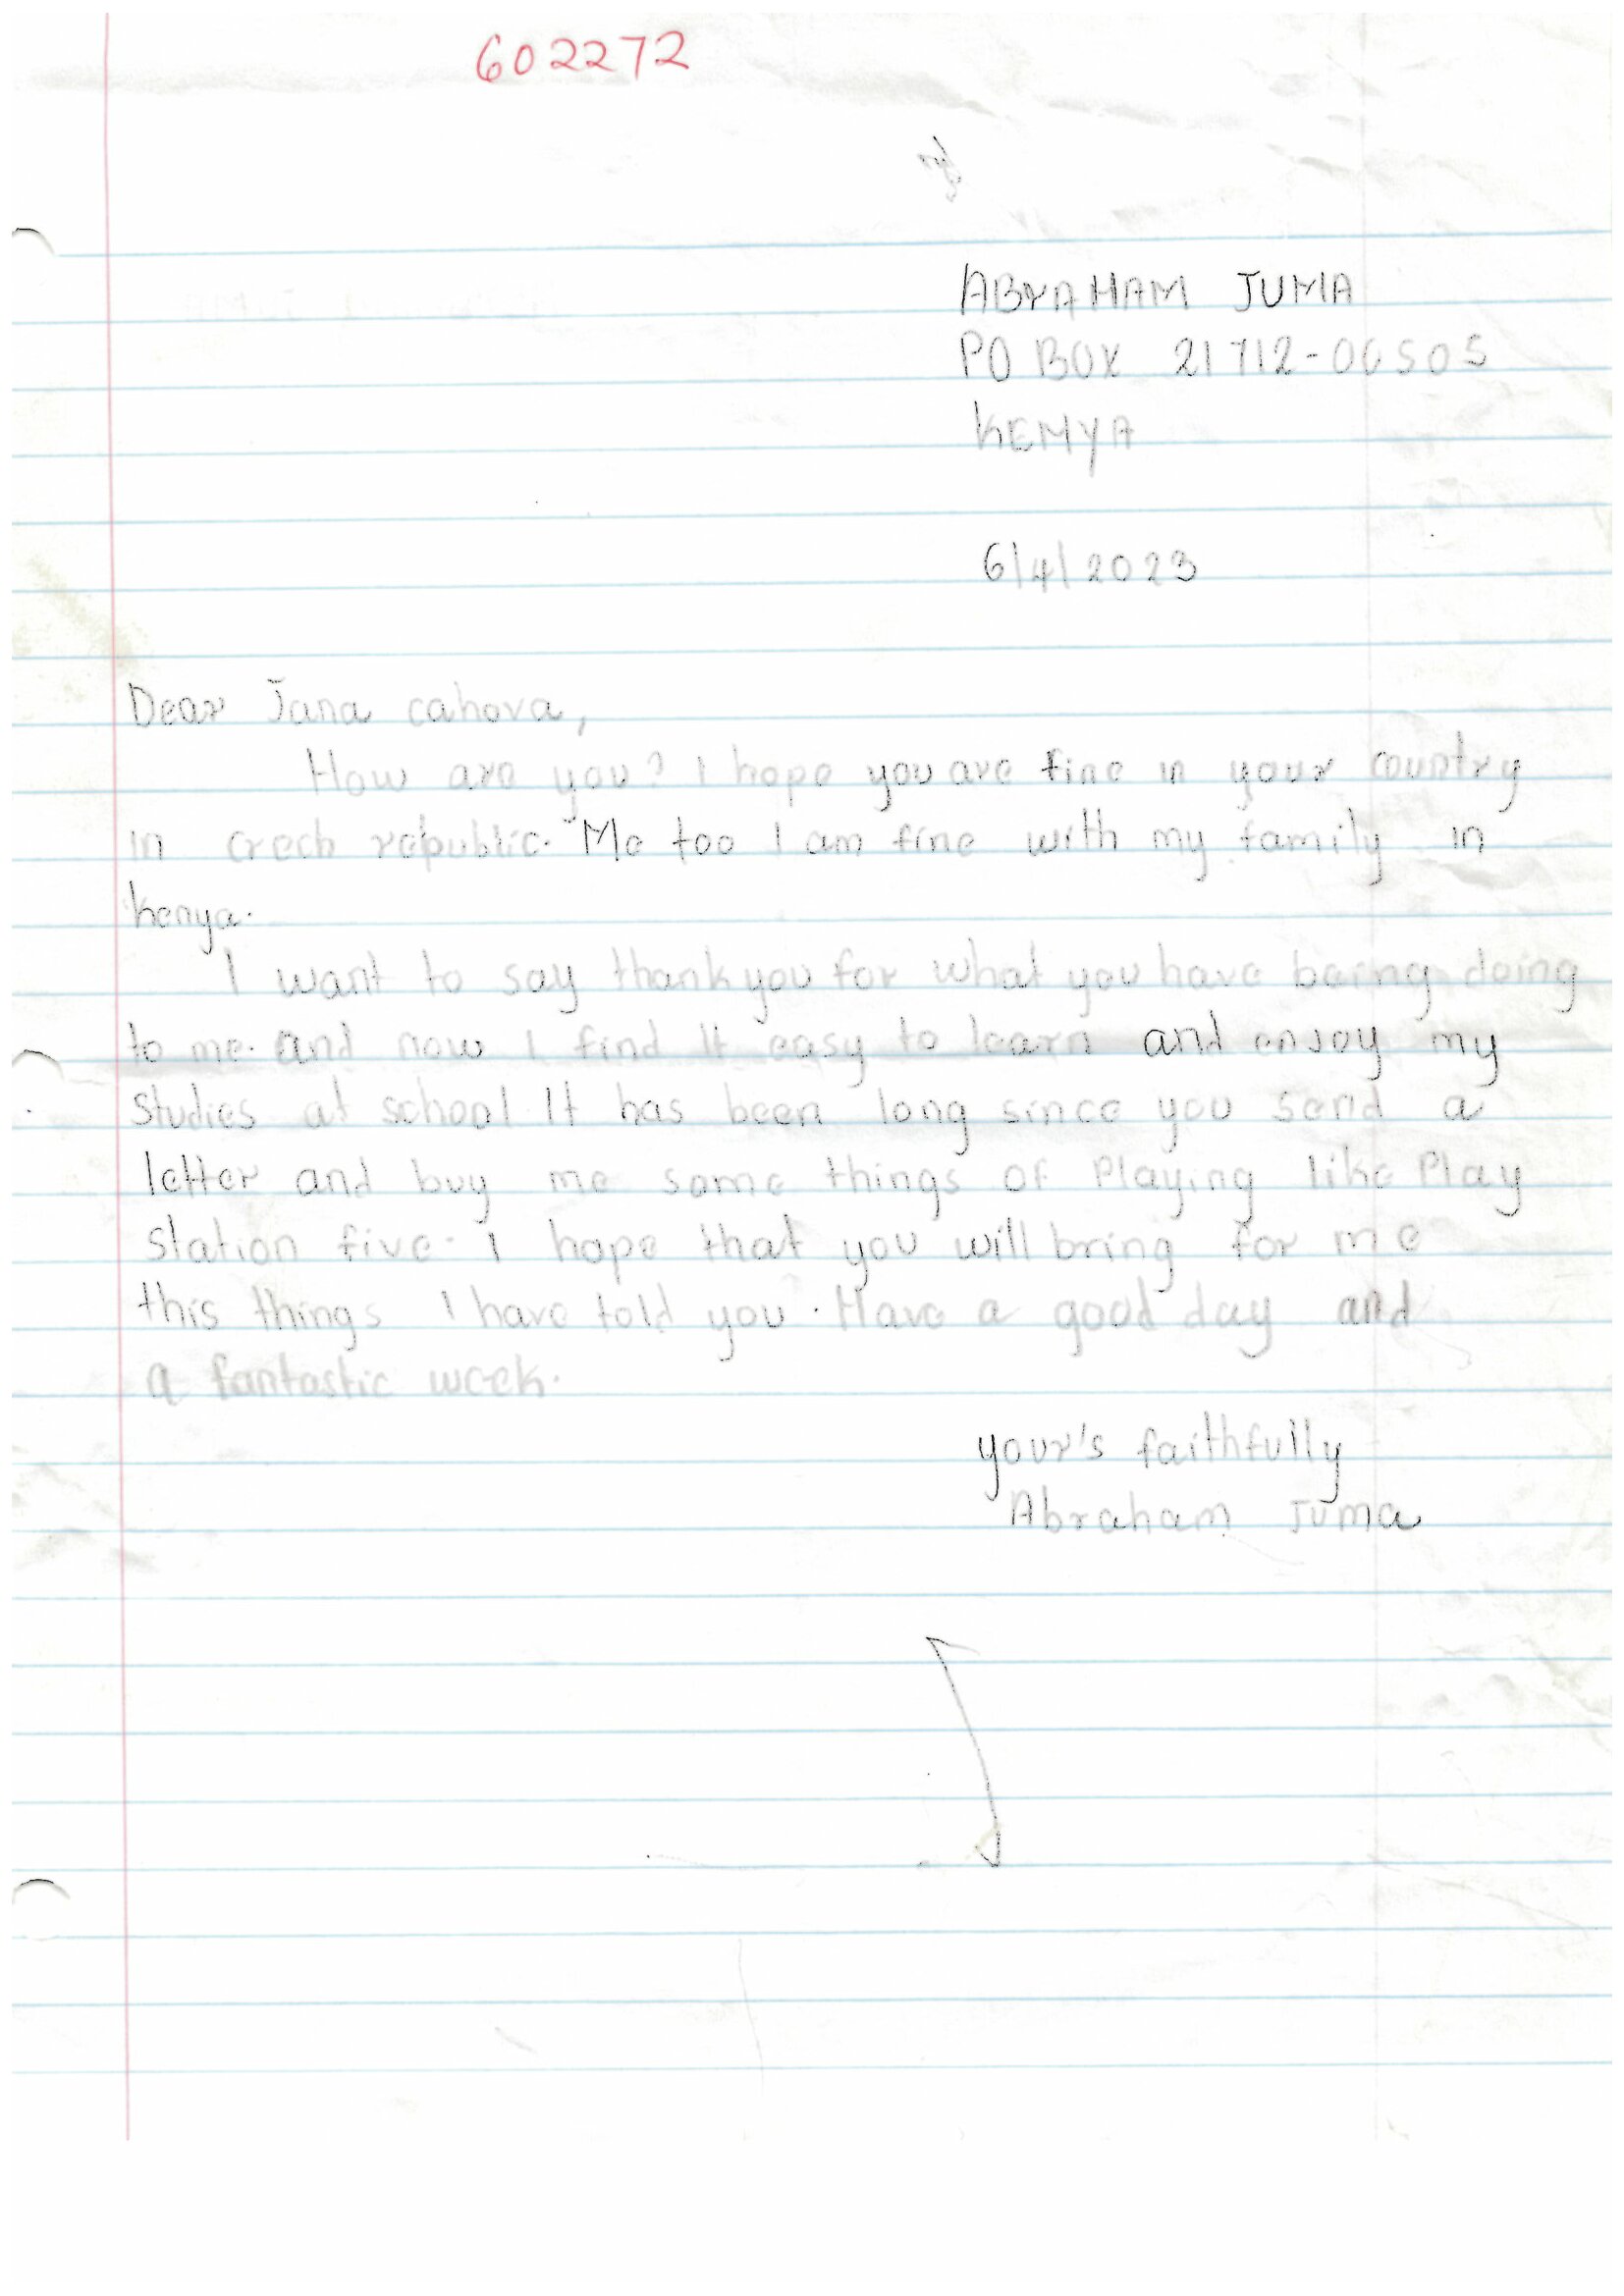 602272
ABRAHAM JUMA
PO BOX 21712-00505
KENYA
6/4/2023
Dear Jana cahova,
How are you? I hope you are fine in your country
in crech republic. Me too I am fine with my family in
kenya.
I want to say thank you for what you have being doing
to me. and now I find It easy to learn and enjoy my
studies at school It has been long since you send a
letter and buy me some things of Playing like Play
station five. I hope that you will bring for me
this things I have told you. Have a good day and
a fantastic week.
your's faithfully
Abraham Juma